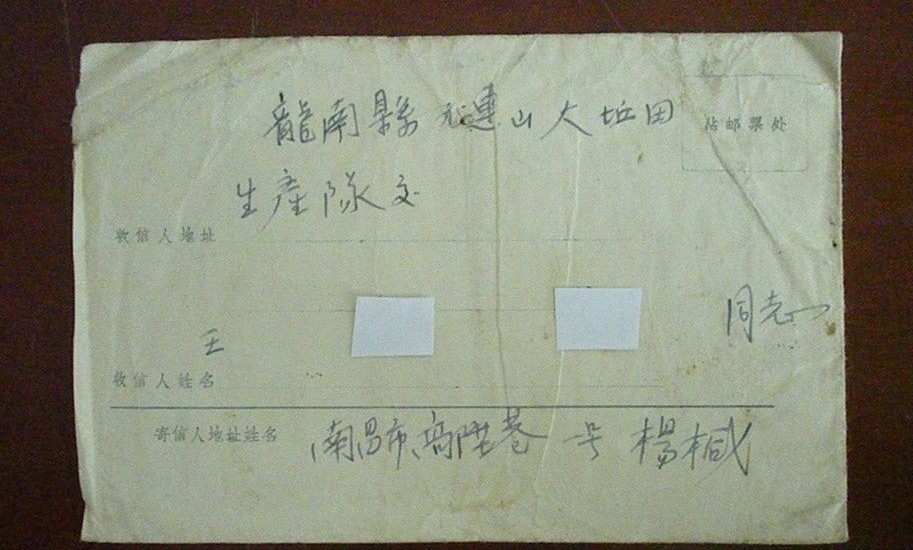 龍南縣九連山大坵田
粘邮票处
生產隊交
收信人地址
王 同志
收信人姓名
寄信人地址姓名 南昌市高陞巷 号 楊棫